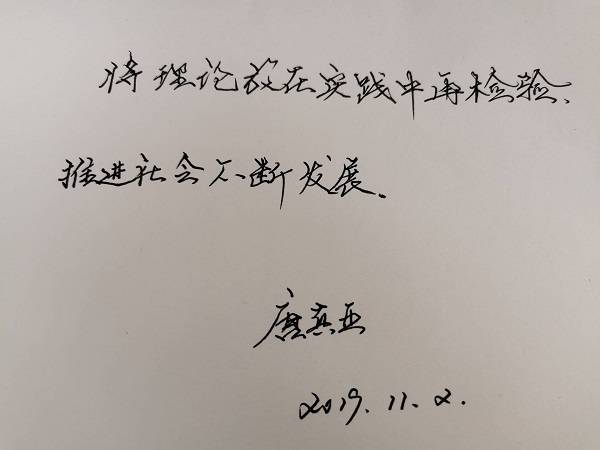 将理论放在实践中再检验、
推进社会不断发展.
唐燕亚
2019.11.2.